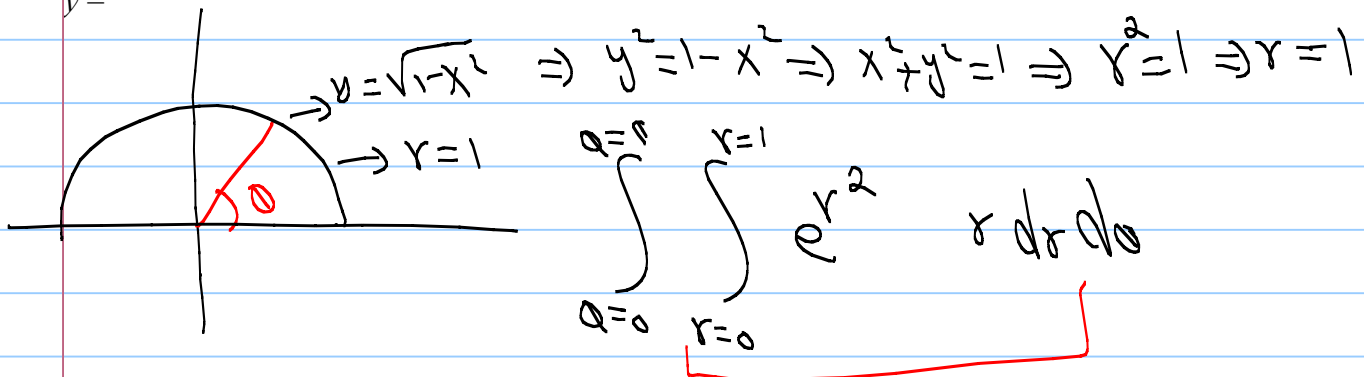 y =
→ y = √(1-x²) ⇒ y² = 1 - x² ⇒ x² + y² = 1 ⇒ r² = 1 ⇒ r = 1
→ r = 1
θ
∫_{θ=0} ∫_{r=0}^{r=1} e^{r²} r dr dθ